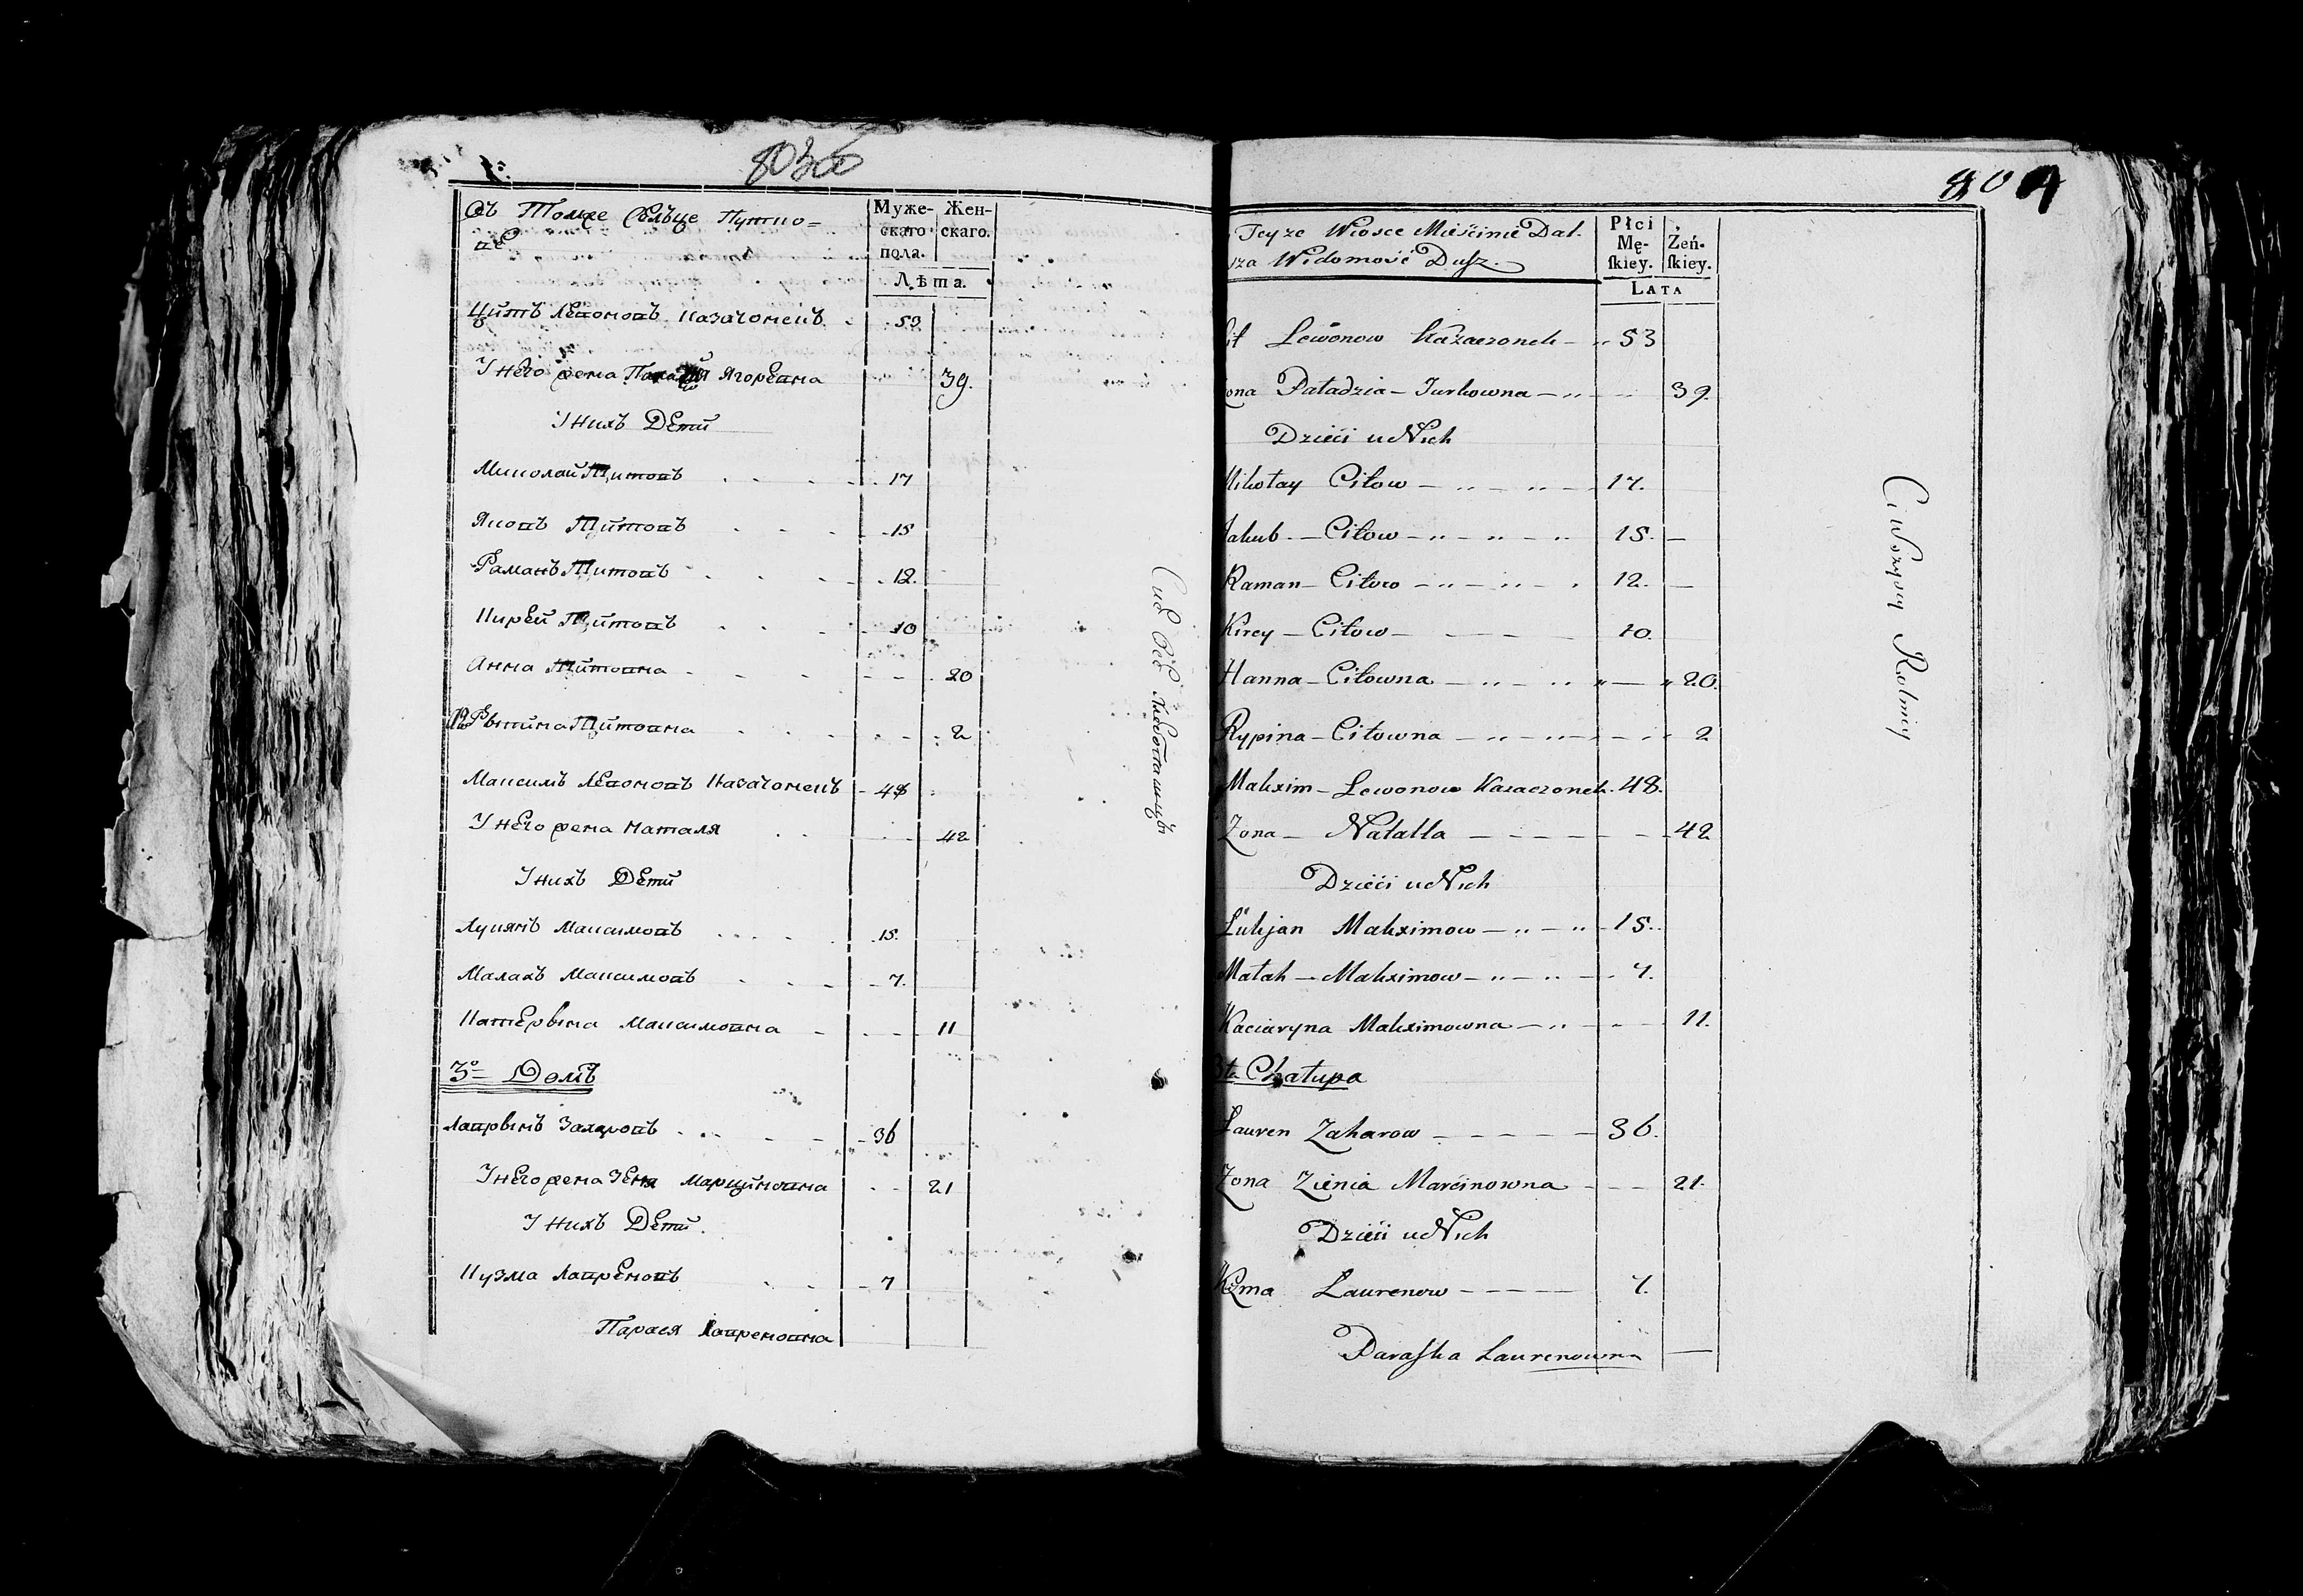 803об
Въ Томже Сельце Пунтпо=
пе
Муже-
скаго
пола.
Жен-
скаго.
Лѣта.
Цитъ Левоновъ Казачонекъ 53
У него жена Паладзя Ягоревна 39.
У нихъ Дети
Миколай Титовъ 17
Яковъ Титовъ 15
Раманъ Титовъ 12.
Кирей Титовъ 10
Анна Титовна 20
Рыпина Титовна 2
Максимъ Левоновъ Казачонекъ 48
У него жена Наталя 42
У нихъ Дети
Лукянъ Максимовъ 15.
Малахъ Максимовъ 7.
Катерына Максимовна 11
3º Домъ
Лаврынъ Захаровъ 36
У него жена Зеня Марциновна 21
У нихъ Дети.
Кузма Лавреновъ 7
Парася Лавреновна
804
Teyże Wiosce Mieścinie Dal.
sza Widomość Dusz.
Płci
Mę-
ſkiey.
Żeń-
ſkiey.
LATA
Lewonow Kazaczonek 53
Paładzia Jurkowna 39.
Dzieci u Nich
Mikołay Citow 17.
Jakub Citow 15.
Raman Citow 12.
Kirey Citow 10.
Hanna Citowna 20.
Rypina Citowna 2
Makxim Lewonow Kazaczonek 48.
Zona Natalla 42
Dzieci u Nich
Łukjan Makximow 15.
Małah Makximow 7.
Kaciaryna Makximowna 11.
3ta Chałupa
Łauren Zaharow 36.
Zona Zienia Marcinowna 21.
Dzieci u Nich
Kuzma Łaurenow 7.
Paraſka Laurenowna
Ci wszyscy Rolnicy